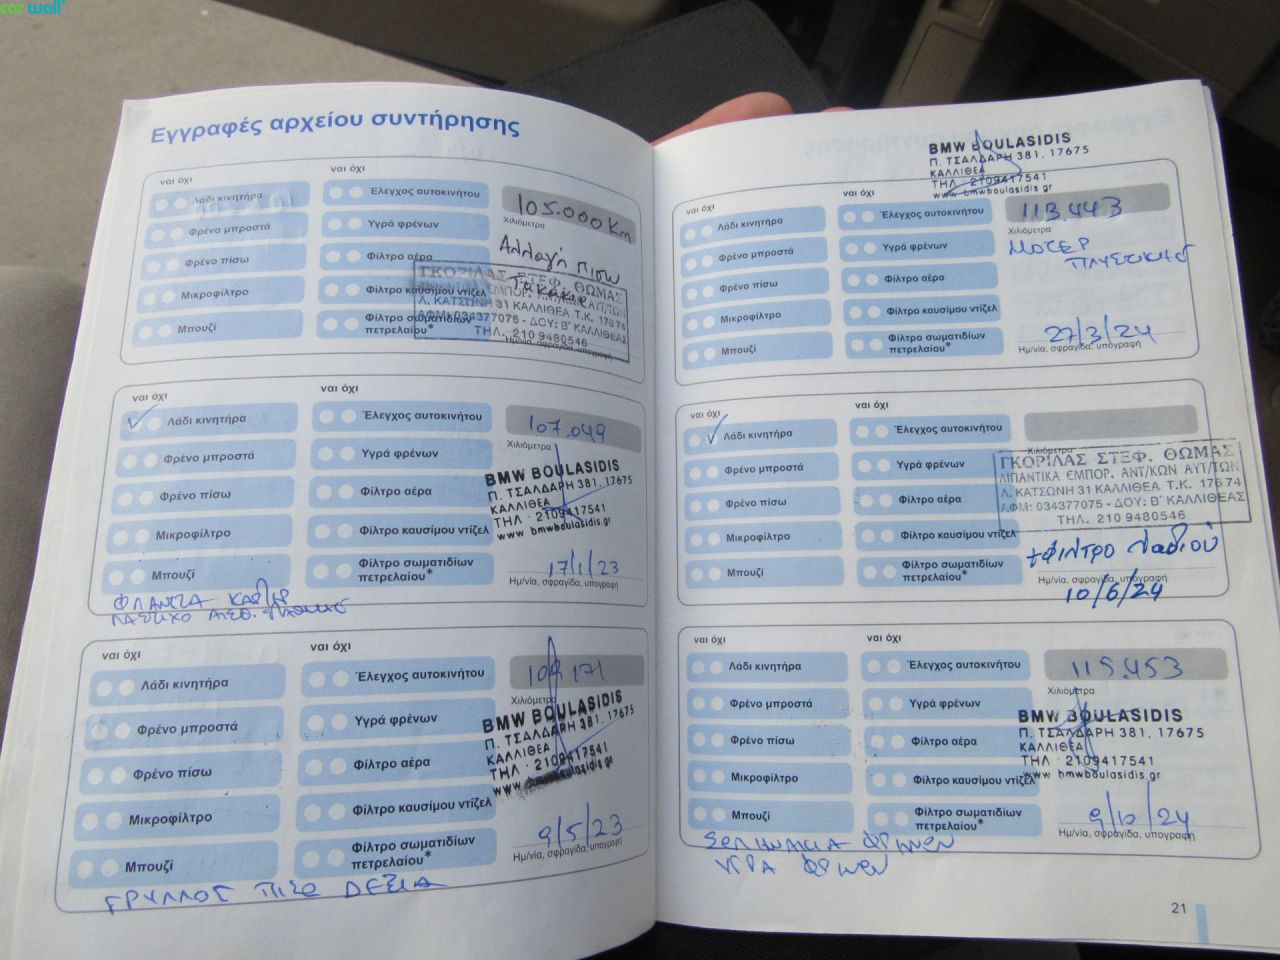 car wall
Εγγραφές αρχείου συντήρησης
ναι όχι
ναι όχι
Λάδι κινητήρα
Έλεγχος αυτοκινήτου
Φρένο μπροστά
Υγρά φρένων
Φρένο πίσω
Φίλτρο αέρα
Μικροφίλτρο
Φίλτρο καυσίμου ντίζελ
Μπουζί
Φίλτρο σωματιδίων
πετρελαίου*
105.000 Km
Χιλιόμετρα
Αλλαγή πισω
Τακάκια
ΓΚΟΡΙΛΑΣ ΣΤΕΦ. ΘΩΜΑΣ
ΛΙΠΑΝΤΙΚΑ ΕΜΠΟΡ. ΑΝΤ/ΚΩΝ ΑΥΤ/ΤΩΝ
Λ. ΚΑΤΣΩΝΗ 31 ΚΑΛΛΙΘΕΑ Τ.Κ. 17674
ΑΦΜ: 034377075 - ΔΟΥ: Β' ΚΑΛΛΙΘΕΑΣ
ΤΗΛ. 210 9480546
Ημ/νία, σφραγίδα, υπογραφή
ναι όχι
ναι όχι
Λάδι κινητήρα
Έλεγχος αυτοκινήτου
Φρένο μπροστά
Υγρά φρένων
Φρένο πίσω
Φίλτρο αέρα
Μικροφίλτρο
Φίλτρο καυσίμου ντίζελ
Μπουζί
Φίλτρο σωματιδίων
πετρελαίου*
107.049
Χιλιόμετρα
BMW BOULASIDIS
Π. ΤΣΑΛΔΑΡΗ 381, 17675
ΚΑΛΛΙΘΕΑ
ΤΗΛ · 2109417541
www bmwboulasidis.gr
17/1/23
Ημ/νία, σφραγίδα, υπογραφή
ΦΛΑΝΤΖΑ
ναι όχι
ναι όχι
Λάδι κινητήρα
Έλεγχος αυτοκινήτου
Φρένο μπροστά
Υγρά φρένων
Φρένο πίσω
Φίλτρο αέρα
Μικροφίλτρο
Φίλτρο καυσίμου ντίζελ
Μπουζί
Φίλτρο σωματιδίων
πετρελαίου*
Χιλιόμετρα
BMW BOULASIDIS
Π. ΤΣΑΛΔΑΡΗ 381, 17675
ΚΑΛΛΙΘΕΑ
ΤΗΛ · 2109417541
www bmwboulasidis.gr
9/5/23
Ημ/νία, σφραγίδα, υπογραφή
ΓΡΥΛΛΟΣ ΠΙΣΩ ΔΕΞΙΑ
BMW BOULASIDIS
Π. ΤΣΑΛΔΑΡΗ 381, 17675
ΚΑΛΛΙΘΕΑ
ΤΗΛ · 2109417541
www bmwboulasidis.gr
ναι όχι
ναι όχι
Λάδι κινητήρα
Έλεγχος αυτοκινήτου
Φρένο μπροστά
Υγρά φρένων
Φρένο πίσω
Φίλτρο αέρα
Μικροφίλτρο
Φίλτρο καυσίμου ντίζελ
Μπουζί
Φίλτρο σωματιδίων
πετρελαίου*
113.443
Χιλιόμετρα
ΜΟΤΕΡ
27/3/24
Ημ/νία, σφραγίδα, υπογραφή
ναι όχι
ναι όχι
Λάδι κινητήρα
Έλεγχος αυτοκινήτου
Φρένο μπροστά
Υγρά φρένων
Φρένο πίσω
Φίλτρο αέρα
Μικροφίλτρο
Φίλτρο καυσίμου ντίζελ
Μπουζί
Φίλτρο σωματιδίων
πετρελαίου*
Χιλιόμετρα
ΓΚΟΡΙΛΑΣ ΣΤΕΦ. ΘΩΜΑΣ
ΛΙΠΑΝΤΙΚΑ ΕΜΠΟΡ. ΑΝΤ/ΚΩΝ ΑΥΤ/ΤΩΝ
Λ. ΚΑΤΣΩΝΗ 31 ΚΑΛΛΙΘΕΑ Τ.Κ. 17674
ΑΦΜ: 034377075 - ΔΟΥ: Β' ΚΑΛΛΙΘΕΑΣ
ΤΗΛ. 210 9480546
+Φιλτρο λαδιού
Ημ/νία, σφραγίδα, υπογραφή
10/6/24
ναι όχι
ναι όχι
Λάδι κινητήρα
Έλεγχος αυτοκινήτου
Φρένο μπροστά
Υγρά φρένων
Φρένο πίσω
Φίλτρο αέρα
Μικροφίλτρο
Φίλτρο καυσίμου ντίζελ
Μπουζί
Φίλτρο σωματιδίων
πετρελαίου*
115.453
Χιλιόμετρα
BMW BOULASIDIS
Π. ΤΣΑΛΔΑΡΗ 381, 17675
ΚΑΛΛΙΘΕΑ
ΤΗΛ · 2109417541
www bmwboulasidis.gr
9/10/24
Ημ/νία, σφραγίδα, υπογραφή
ΣΩΛΗΝΑΚΙΑ ΦΡΕΝΩΝ
ΥΓΡΑ ΦΡΕΝΩΝ
21